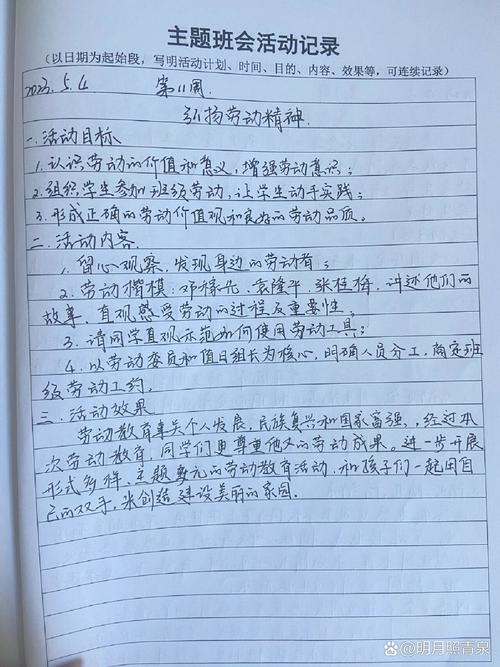 主题班会活动记录
（以日期为起始段，写明活动计划、时间、目的、内容、效果等，可连续记录）
2023.5.4 第11周
弘扬劳动精神
一.活动目标
1.认识劳动的价值和意义，增强劳动意识；
2.组织学生参加班级劳动，让学生动手实践；
3.形成正确的劳动价值观和良好的劳动品质。
二.活动内容
1.留心观察，发现身边的劳动者；
2.劳动楷模：邓稼先，袁隆平，张桂梅，讲述他们的
故事，直观感受劳动的过程及重要性；
3.请同学直观示范如何使用劳动工具；
4.以劳动委员和值日组长为核心，明确人员分工，确定班
级劳动公约。
三.活动效果
劳动教育事关个人发展，民族复兴和国家富强，经过本
次劳动教育，同学们更尊重他人的劳动成果。进一步开展
形式多样，主题多元的劳动教育活动，和孩子们一起用自
己的双手，来创造建设美丽的家园。
Bai百科@明月照青泉